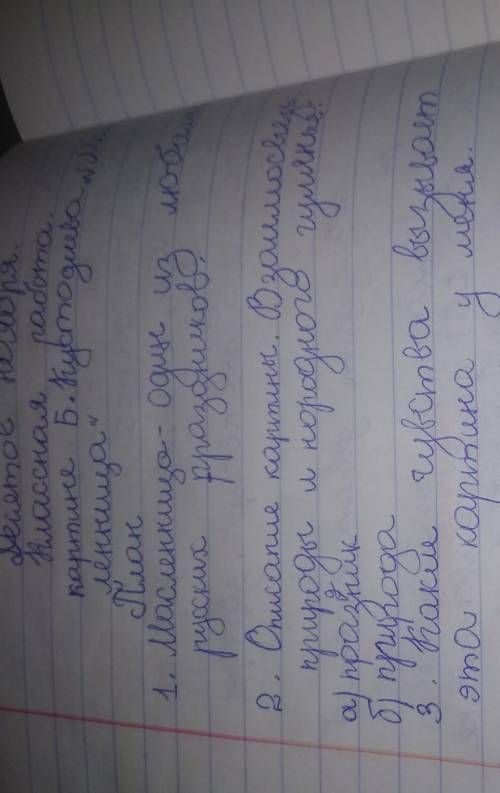 Десятое ноября.
Классная работа.
картине Б. Кустодиева „Мас
ленница"
План
1. Масленница - один из любим
русских праздников.
2. Описание картины. Взаимосвязь
природы и народного гулянья.
а) праздник
б) природа
3. Какие чувства вызывает
эта картина у меня.